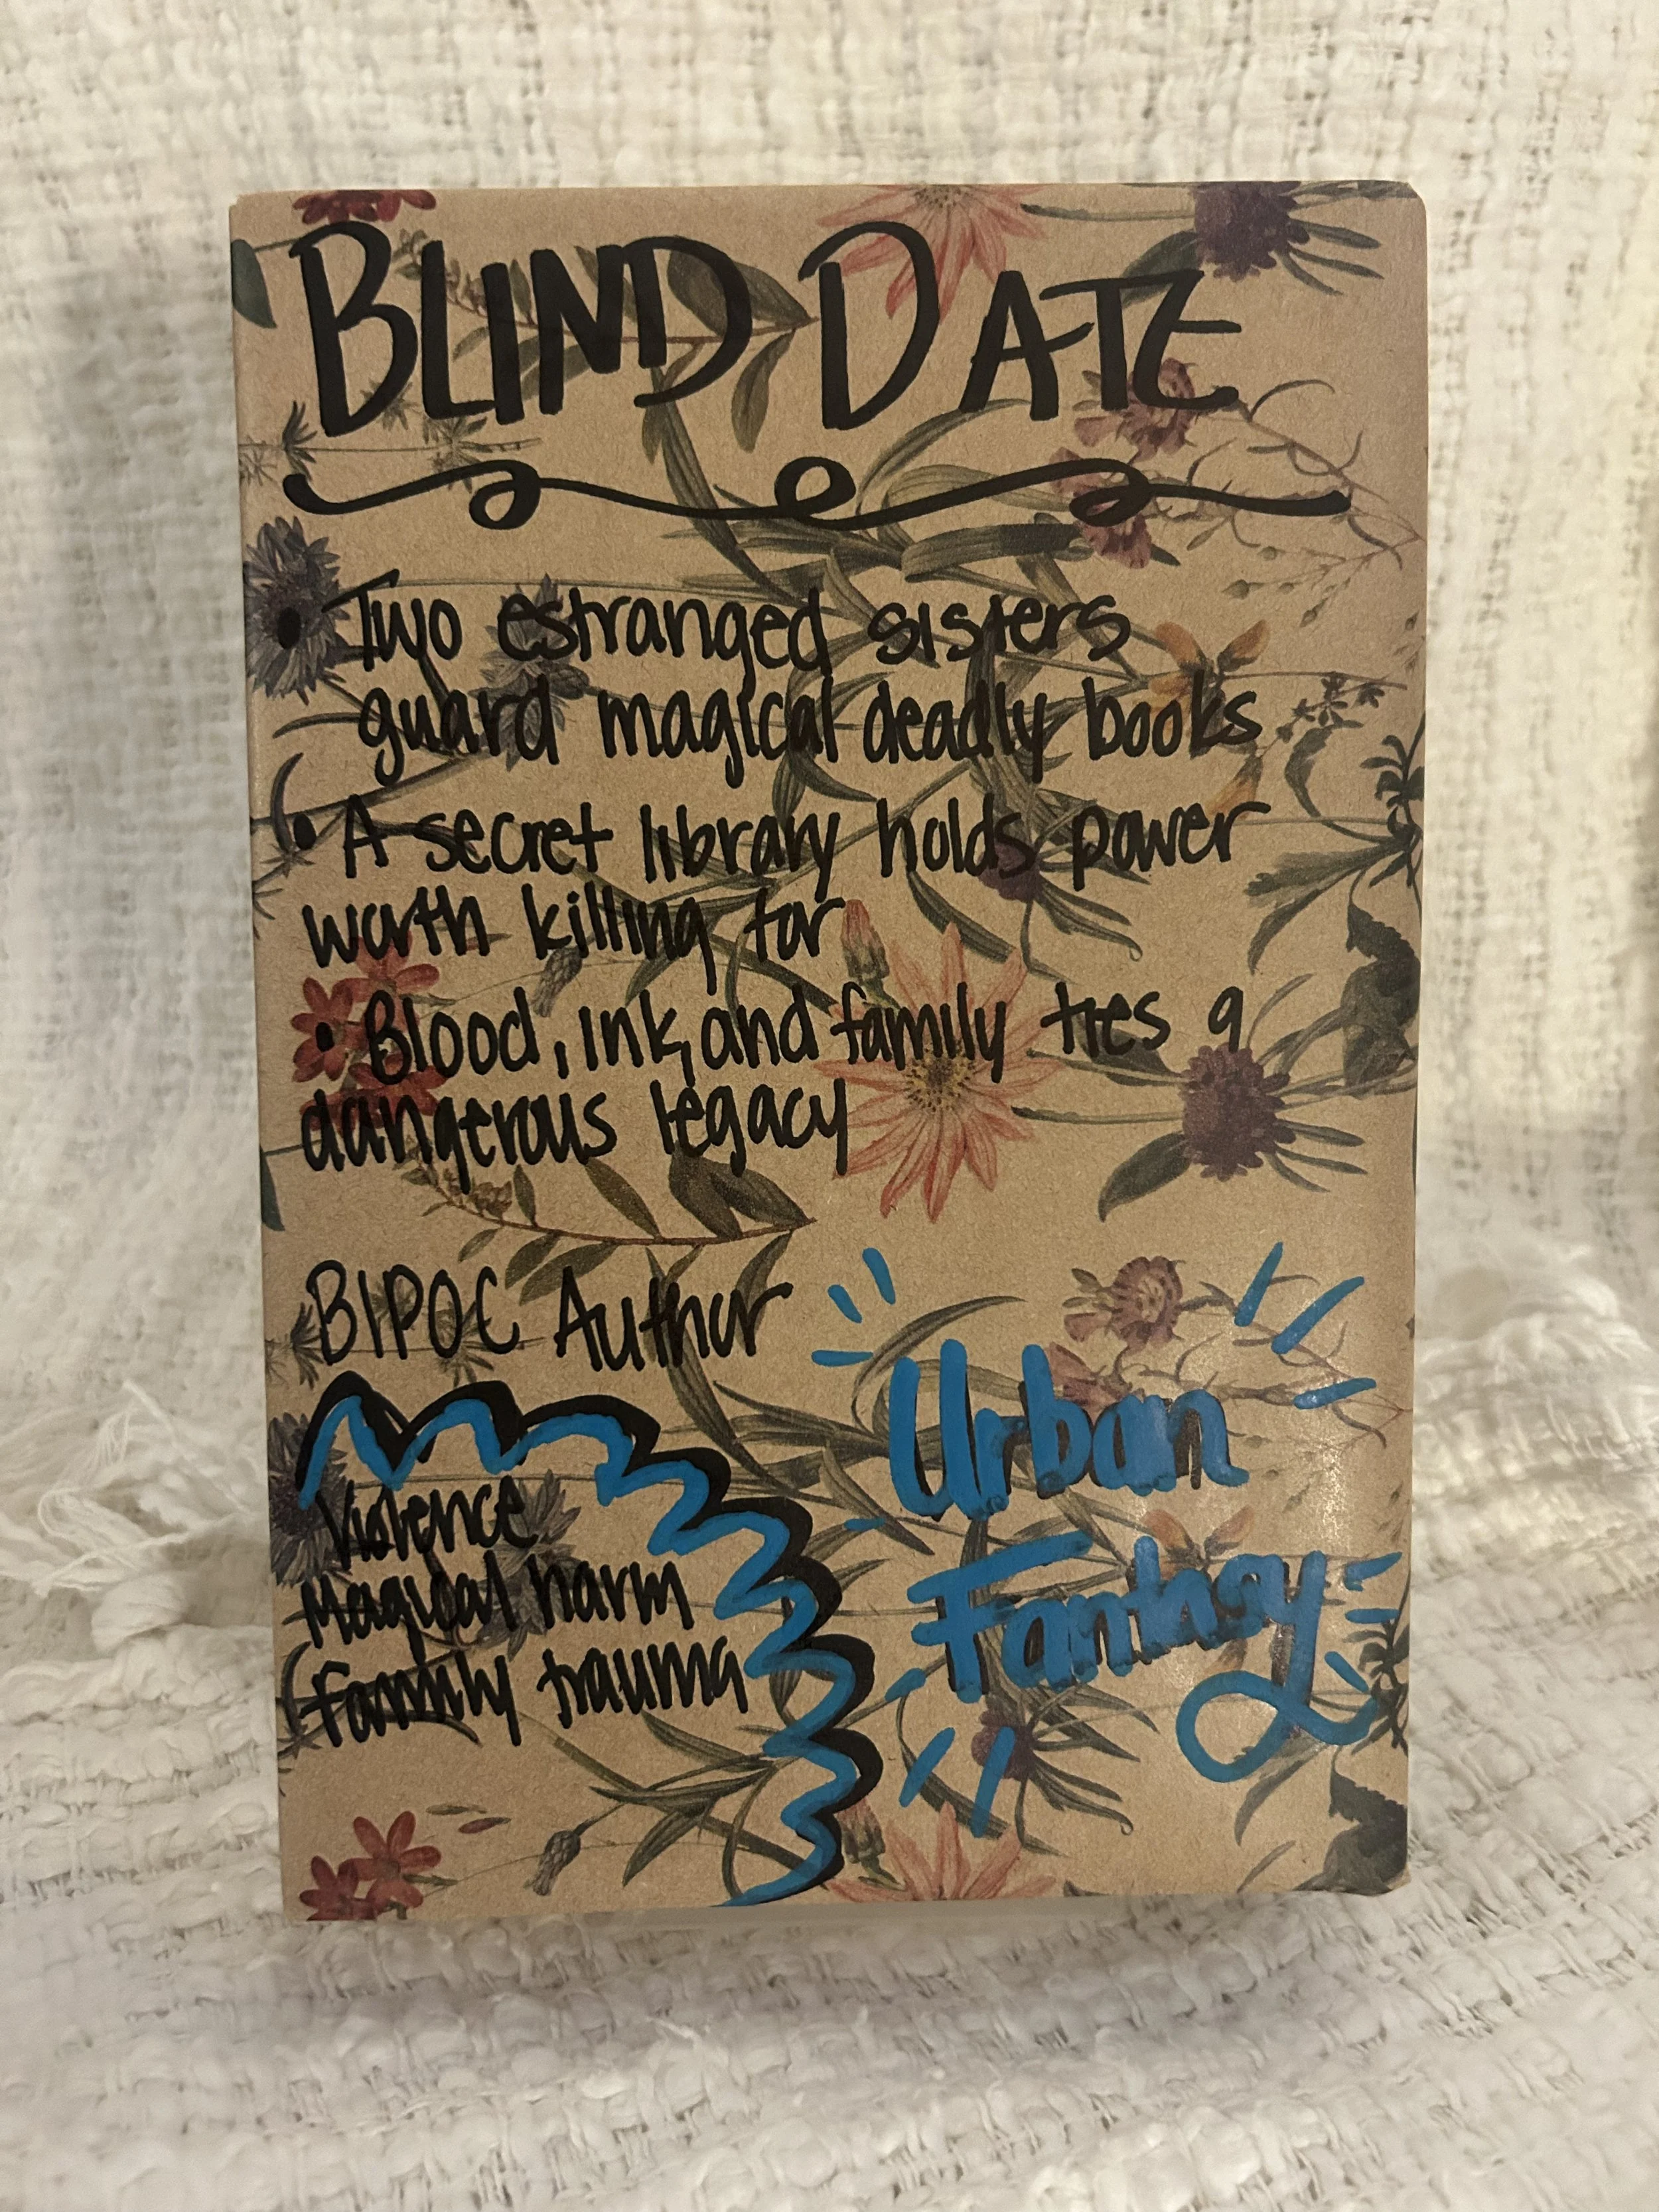 BLIND DATE
• Two estranged sisters
guard magical deadly books
• A secret library holds power
worth killing for
• Blood, ink, and family ties a
dangerous legacy
BIPOC Author
Violence
Magical harm
Family trauma
Urban
Fantasy